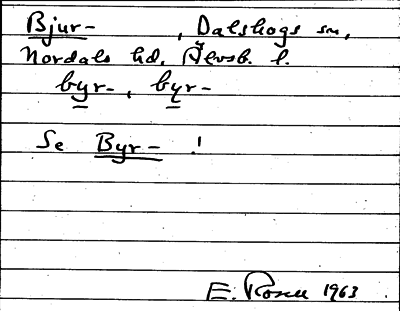 Bjur- , Dalskogs sn,
Nordals hd, Älvsb. l.
byr-, byr-
Se Byr- !
E. Rosell 1963